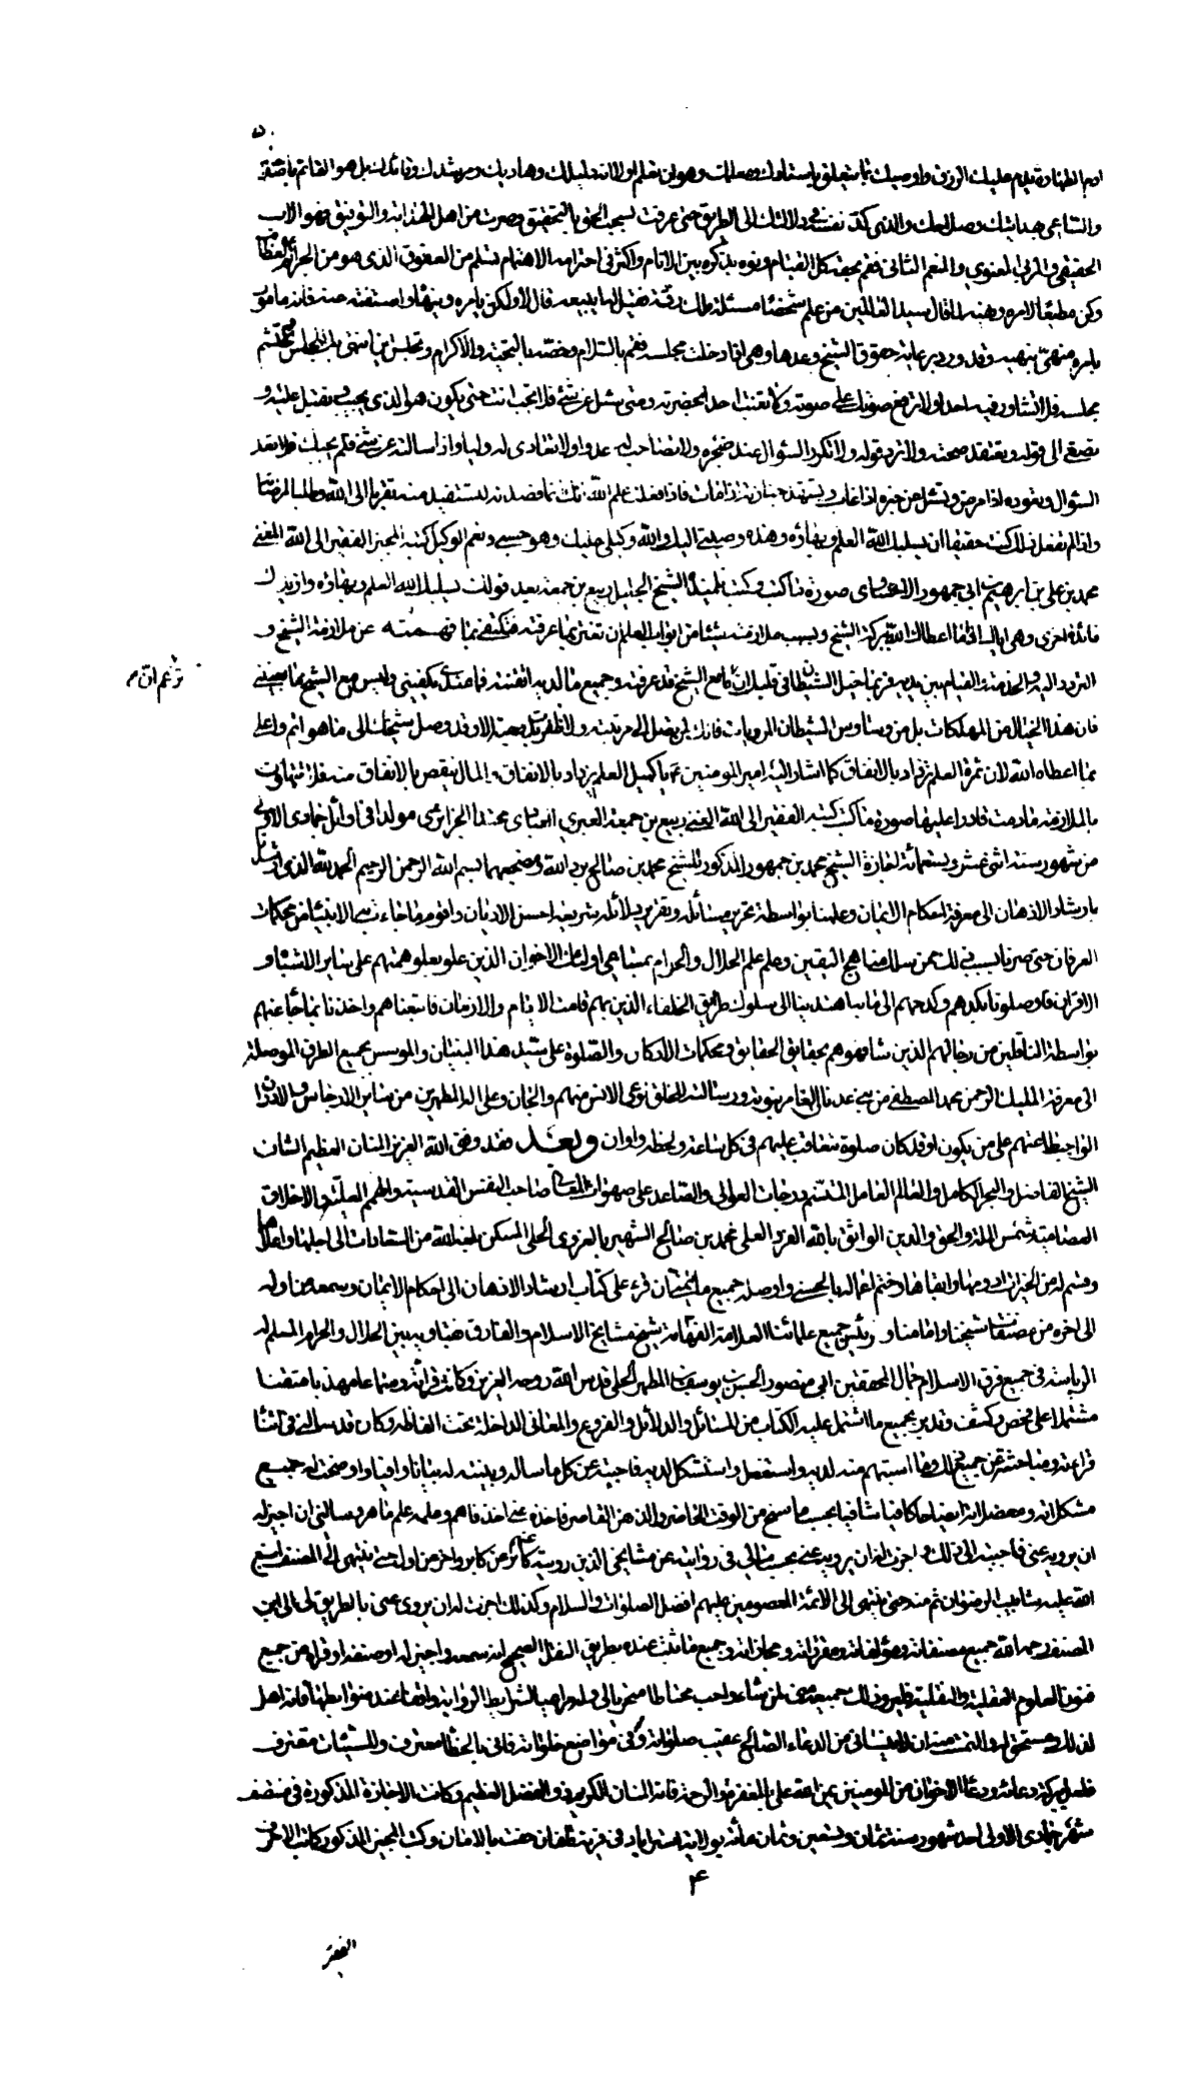 ادم الطهارة يدم عليك الرزق واوصيك بما يتعلق باستادك ومعلمك وهو ان تعلم اولا انه دليلك وهاديك ومرشدك وقائدك بل هو القائم باصلة
والساعي هدايتك وصلاحك والذي كد نفسه في دلالتك الى الطريق حتى عرفت سبيل الحق بالتحقيق وصرت من اهل الهداية والتوفيق فهو الاب
الحقيقي والمربي المعنوي والمنعم الثاني فقم بحقه كل القيام ونوه بذكره بين الانام واكثر في احترامه الاهتمام تسلم من العقوق الذي هو من الجرائم العظام
وكن مطيعا لامره ونهيه لما قال سيد العالمين من علم شخصا مسئلة ملك رقه فقيل ايبيعه قال لا ولكن يامره وينهاه واستفته منه فانه مامور
بامره منهي بنهيه وقد ورد رعاية حقوق الشيخ وعدها وهي اذا دخلت مجلسه فعم بالسلام وخصه بالتحية والاكرام وتجلس اين انتهى بك المجلس وتحتشم
مجلسه فلا تشاور فيه احدا ولا ترفع صوتك على صوته ولا تغتب احدا بحضرته ومتى سئل عن شئ فلا تجب انت حتى يكون هو الذي يجيب وتقبل عليه و
تصغي الى قوله وتعتقد صحته ولا ترد قوله ولا تكرر السؤال عند ضجره ولا تصاحب له عدوا ولا تعادي له وليا واذا سالته عن شئ فلم يجبك فلا تعد
السؤال وتعوده اذا مرض وتسئل عن خبره اذا غاب وتشهد جنازته اذا مات فاذا فعلت علم الله انك انما قصدته لتستفيد منه تقربا الى الله وطلبا لمرضاته
واذا لم تفعل ذلك كنت حقيقا ان يسلبك الله العلم وبهاؤه وهذه وصيتي اليك والله وكيلي عليك وهو حسبي ونعم الوكيل كتبه المجيز الفقير الى الله الغني
محمد بن علي بن ابراهيم بن ابي جمهور الاحساوي صورة ما كتب وكتب تلميذه الشيخ الجليل ربيع بن جمعة بعد قوله يسلبك الله العلم وبهاؤه وازيدك
فائدة اخرى وهي اياك اذا اعطاك الله ببركة الشيخ وبسبب ملازمته شيئا من ابواب العلم ان تغتر بما عرفته فتكتفي بما فهمته عن ملازمة الشيخ و
التردد اليه والخدمة والقيام بين يديه فربما خيل الشيطان في قلبك ان ما مع الشيخ قد عرفته وجميع ما لديه اتقنته فما عندك يكفيني وليس مع الشيخ ما يعنيني
فان هذا الخيال من المهلكات بل من وساوس الشيطان المرديات فانك لن تصل الى مرتبته ولا تظفر بك همته الا وقد وصل شيخك الى ما هو اتم واعلى
مما اعطاه الله لان ثمرة العلم تزداد بالانفاق كما اشار اليه امير المؤمنين ع يا كميل العلم يزداد بالانفاق والمال ينقص بالانفاق منه فلا تتهاون
بالملازمة ما دمت قادرا عليها صورة ما كتب كتبه الفقير الى الله الغني ربيع بن جمعة العبري العبادي محتدا الجزائري مولدا في اوائل جمادى الاولى
من شهور سنة اثني عشر وتسعمائة اجازة الشيخ محمد بن جمهور المذكور للشيخ محمد بن صالح رحمهما الله ورضي عنهما بسم الله الرحمن الرحيم الحمد لله الذي ارشدنا
بارشاد الاذهان الى معرفة احكام الايمان وعلمنا بواسطة تحرير مسائله وتقرير دلائله شريعة احسن الاديان واقوم ما جاءت به الانبياء من محكمات
العرفان حتى صرنا بسبب ذلك ممن سلك مناهج اليقين وعلم علم الحلال والحرام بمساعي اولئك الاخوان الذين علو بعلو هممهم على سائر الاشباه و
الاقران فاوصلونا بكدهم وكدحهم الى ما به اهتدينا الى سلوك طريق الخلفاء الذين بهم قامت الايام والازمان فاتبعناهم واخذنا بما جاء عنهم
بواسطة الناقلين من رجالهم الذين شافهوهم بحقايق الحقايق ومحكمات الاركان والصلوة على مشيد هذا البنيان والموسس بجميع الطرق الموصلة
الى معرفة المليك الرحمن محمد المصطفى من بني عدنان العام بنبوته ورسالته للخلق نوعي الانس منهم والجان وعلى اله المطهرين من سائر الارجاس والادران
الواجبة طاعتهم على من يكون او قد كان صلوة متعاقبة عليهم في كل ساعة ولحظة واوان وبعد فقد وفق الله العزيز المنان العظيم الشان
الشيخ الفاضل والبحر الكامل والعالم العامل المتسنم درجات العوالي والصاعد على صهوات المعالي صاحب النفس القدسية والهمم العلية والاخلاق
العصامية شمس الملة والحق والدين الواثق بالله العزيز العلي محمد بن صالح الشهير بالغروي الحلي المسكن بلغه الله من السعادات الى اجلها واعلاها
وقسم له من الخيرات اوفيها وابقاها وختم اعماله بالحسنى واوصله جميع ما يتمنى ان قرء على كتاب ارشاد الاذهان الى احكام الايمان وسمعه من اوله
الى اخره من مصنفات شيخنا وامامنا ورئيس جميع علمائنا العلامة الفهامة شيخ مشايخ الاسلام والفارق بفتاويه بين الحلال والحرام المسلم له
الرياسة في جميع فرق الاسلام جمال المحققين ابي منصور الحسن بن يوسف بن المطهر الحلي قدس الله روحه العزيز وكانت قرائته وسماعه مهذبا متقنا
مشتملا على فحص وكشف وتدبر بجميع ما اشتمل عليه الكتاب من المسائل والدلائل والفروع والمعاني الداخلة تحت الفاظه وكان قد سالني في اثناء
قراءته ومباحثته عن جميع ذلك وما استبهم منه لديه واستفصل واستشكل لديه فاجبته عن كل ما ساله وبينته له بيانا وافيا واوضحت له جميع
مشكلاته ومعضلاته ايضاحا كافيا شافيا بحسب ما سنح من الوقت الحاضر والذهن القاصر فاخذه عني اخذ فاهم وعلمه علم ماهر وسالني ان اجيز له
ان يرويه عني فاجبته الى ذلك واجزت له ان يرويه عني بحسب مالي في روايته عن مشايخي الذين رويته عنهم كابر عن كابر واخر عن اول حتى ينتهي الى المصنف اسبغ
الله عليه شابيب الرضوان ثم منه حتى ينتهي الى الائمة المعصومين عليهم افضل الصلوات والسلام وكذلك اجزت له ان يروي عني بالطريق لي الى ابن
المصنف رحمه الله جميع مصنفاته ومؤلفاته ومقرواته ومجازاته وجميع ما ثبت عنده بطريق النقل الصحيح انه سمعه واجيز له او صنفه او قراه من جميع
فنون العلوم العقلية والنقلية فليرو ذلك جميعه عني لمن شاء واحب محتاطا متحريا لي وله مراعيا لشرايط الرواية واقفا عند ضوابطها فانه اهل
لذلك ومستحق له والتمست منه ان لا ينساني من الدعاء الصالح عقيب صلواته وفي مواضع خلواته فاني بالخطا معترف وللسيئات مقترف
فلعل ببركة دعائه ودعاء الاخوان من المومنين يمن الله علي بالمغفرة والرحمة فانه المنان الكريم ذو الفضل العظيم وكانت الاجازة المذكورة في منتصف
شهر جمادى الاولى احد شهور سنة ثمان وتسعين وثمان مائة بولاية استراباد في قرية ... حفت بالامان وكتب المجيز المذكور كاتب الاحرف
۴
الفقير